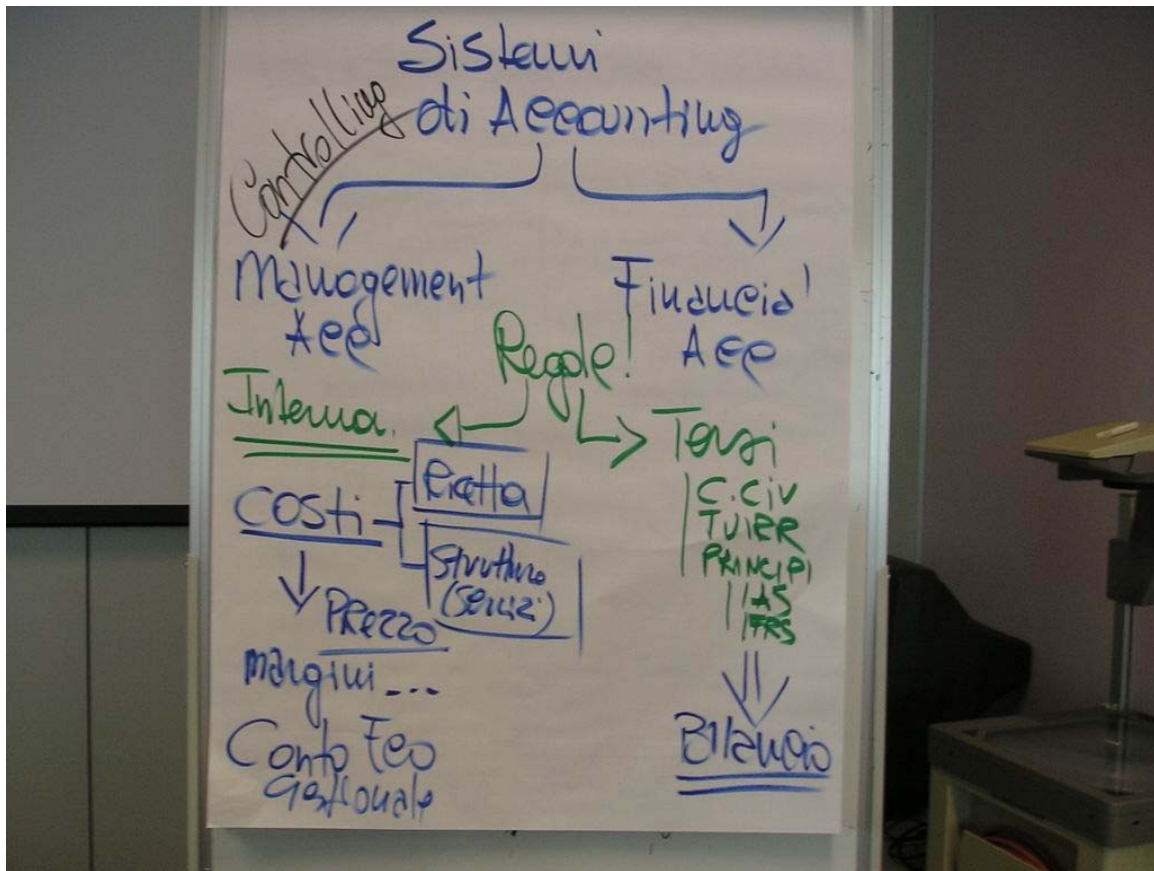 Sistemi
di Accounting
Controlling
Management
Acc
Financial
Acc
Regole!
Interna.
Terzi
Costi
Ricetta
Struttura
(Servizi)
C.Civ
TUIRR
PRINCIPI
IAS
IFRS
Prezzo
Margini...
Conto Eco
Gestionale
Bilancio